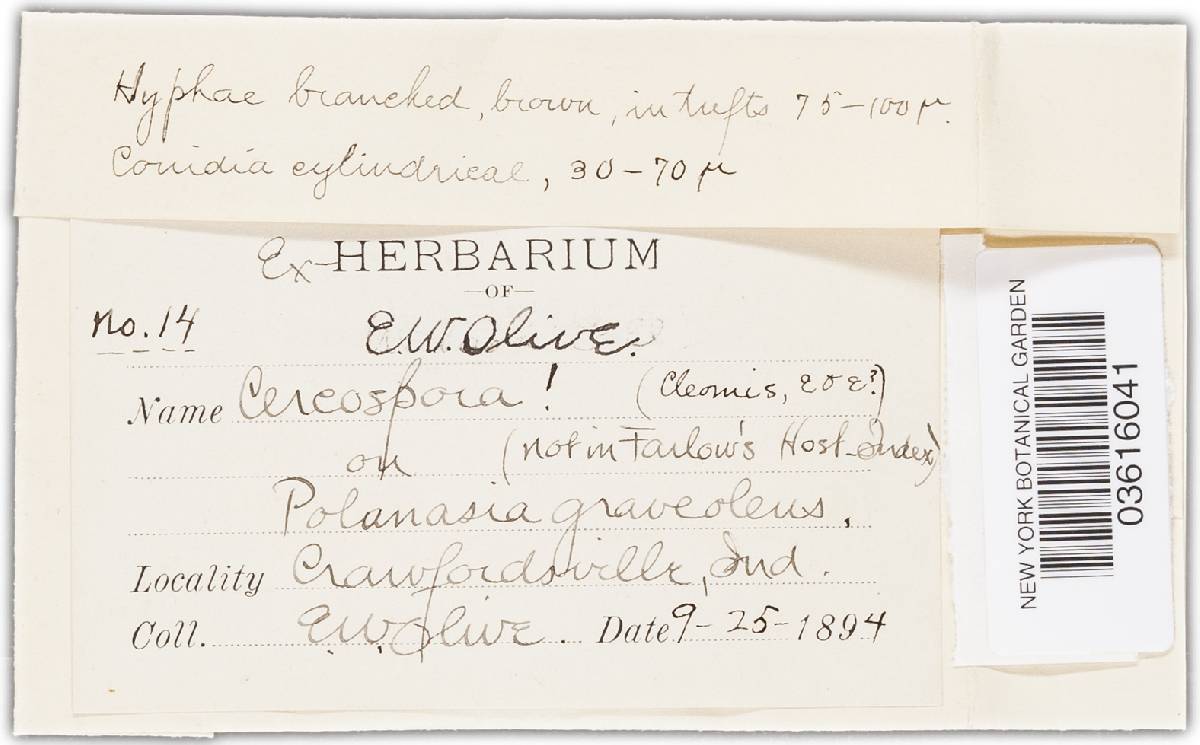 Hyphae branched, brown, in tufts 75-100 μ.
Conidia cylindrical, 30-70 μ
Ex-HERBARIUM
-OF-
no. 14 E.W. Olive.
Name Cercospora! (Cleomis, E & E?)
on (not in Farlow's Host-Index)
Polanasia graveolens.
Locality Crawfordsville, Ind.
Coll. E.W. Olive. Date 9-25-1894
NEW YORK BOTANICAL GARDEN
03616041